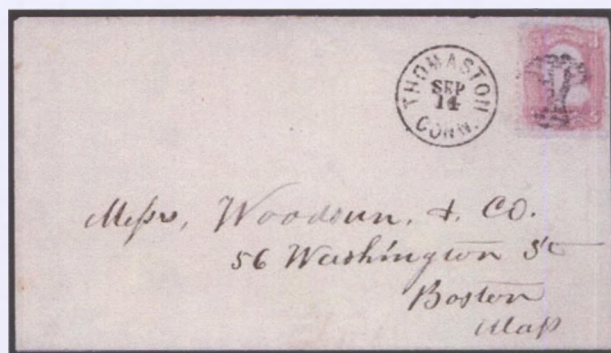 THOMASTON
SEP
14
CONN.
Messrs, Woodsun, & Co.
56 Washington St
Boston
Mass